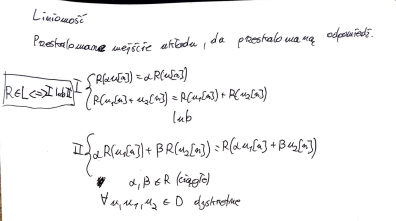 Liniowość
Przeskalowane wejście układu, da przeskalowaną odpowiedź.
R∈L<=>I lub II
I { R(αu[n]) = αR(u[n])
R(u₁[n] + u₂[n]) = R(u₁[n]) + R(u₂[n])
lub
II { αR(u₁[n]) + βR(u₂[n]) = R(αu₁[n] + βu₂[n])
α, β ∈ R (ciągłe)
∀ u, u₁, u₂ ∈ D dyskretne